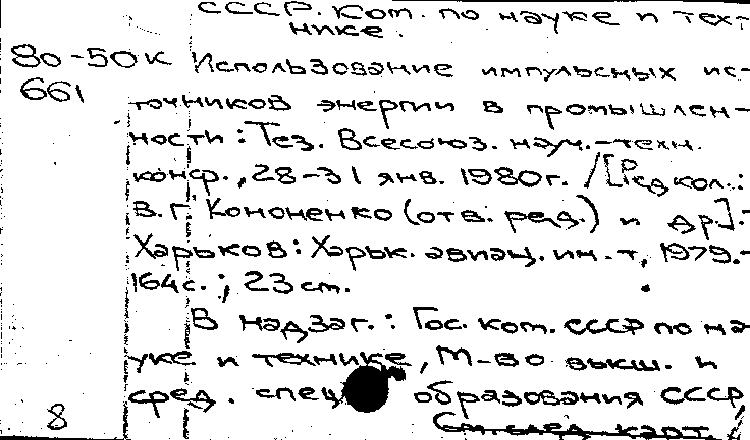 СССР. Ком. по науке и тех-
нике.
80-50к Использование импульсных ис-
661 точников энергии в промышлен-
ности: Тез. Всесоюз. науч.-техн.
конф., 28-31 янв. 1980г. /[Редкол.:
В.Г. Кононенко (отв. ред.) и др.].-
Харьков: Харьк. авиац. ин-т, 1979.-
164с.; 23см.
В надзаг.: Гос. ком. СССР по на-
уке и технике, М-во высш. и
сред. спец. образования СССР,
8 См. след. карт.